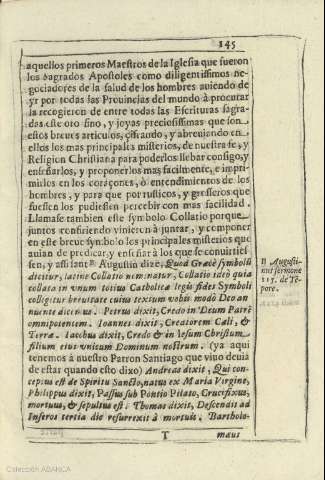 145
aquellos primeros Maestros de la Iglesia que fueron
los Sagrados Apostoles como diligentissimos ne-
gociadores de la salud de los hombres auiendo de
yr por todas las Prouincias del mundo à procurar
la recogieron de entre todas las Escrituras sagra-
das este oro fino, y joyas preciosissimas que son
estos breues articulos, çifrando, y abreuiando en
ellos los mas principales misterios, de nuestra fe, y
Religion Christiana para poderlos llebar consigo, y
enseñarlos, y proponerlos mas facilmente, e impri-
mirlos en los coraçones, ò entendimientos de los
hombres, y para que por rusticos, y grosseros que
fuessen los pudiessen percebir con mas facilidad.
Llamase tambien este symbolo Collatio porque
juntos confiriendo vinieron à juntar, y componer
en este breue symbolo los principales misterios que
auian de predicar, y enseñar à los que se conuirties-
sen, y assi san Augustin dize, Quod Græcè symbolũ
dicitur, latinè Collatio nominatur, Collatio ideò quia
collata in vnum totius Catholicæ legis fides Symboli
colligitur breuitate cuius textum vobis modò Deo an
nuente dicemus. Petrus dixit, Credo in Deum Patrẽ
omnipotentem. Ioannes dixit, Creatorem Cæli, &
Terræ. Iacobus dixit, Credo & in Iesum Christum
filium eius vnicum Dominum nostrum. (ya aqui
tenemos à nuestro Patron Santiago que vino deuia
de estar quando esto dixo) Andreas dixit, Qui con-
ceptus est de Spiritu Sancto, natus ex Maria Virgine,
Philippus dixit, Passus sub Pontio Pilato, Crucifixus,
mortuus, & sepultus est. Thomas dixit, Descendit ad
Inferos tertia die resurrexit à mortuis. Bartholo-
T
maus
Augusti-
nus sermone
115. de Tẽ-
pore.
Colección ABANCA